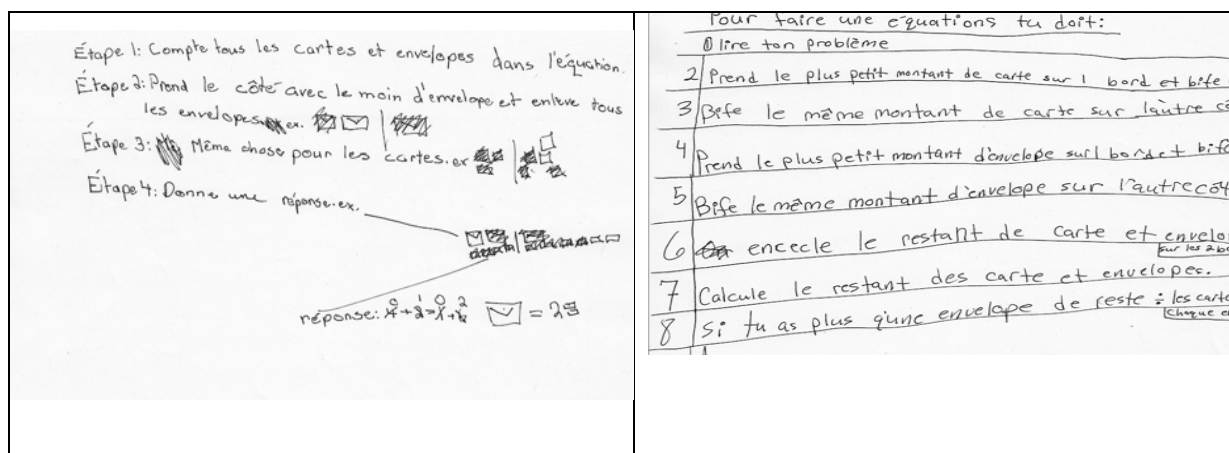 Étape 1: Compte tous les cartes et envelopes dans l'équation.
Étape 2: Prend le côté avec le moin d'envelope et enlève tous
les envelopes ex.
Étape 3: Même chose pour les cartes. ex
Étape 4: Donne une réponse. ex.
réponse:
Pour faire une équations tu doit:
① lire ton problème
2 Prend le plus petit montant de carte sur 1 bord et bife
3 Bife le même montant de carte sur l'autre
4 Prend le plus petit montant d'envelope sur 1 bord et
5 Bife le même montant d'envelope sur l'autre
6 encecle le restant de carte et
sur les 2
7 Calcule le restant des carte et envelopes.
8 Si tu as plus qu'une envelope de reste ÷ les
chaque